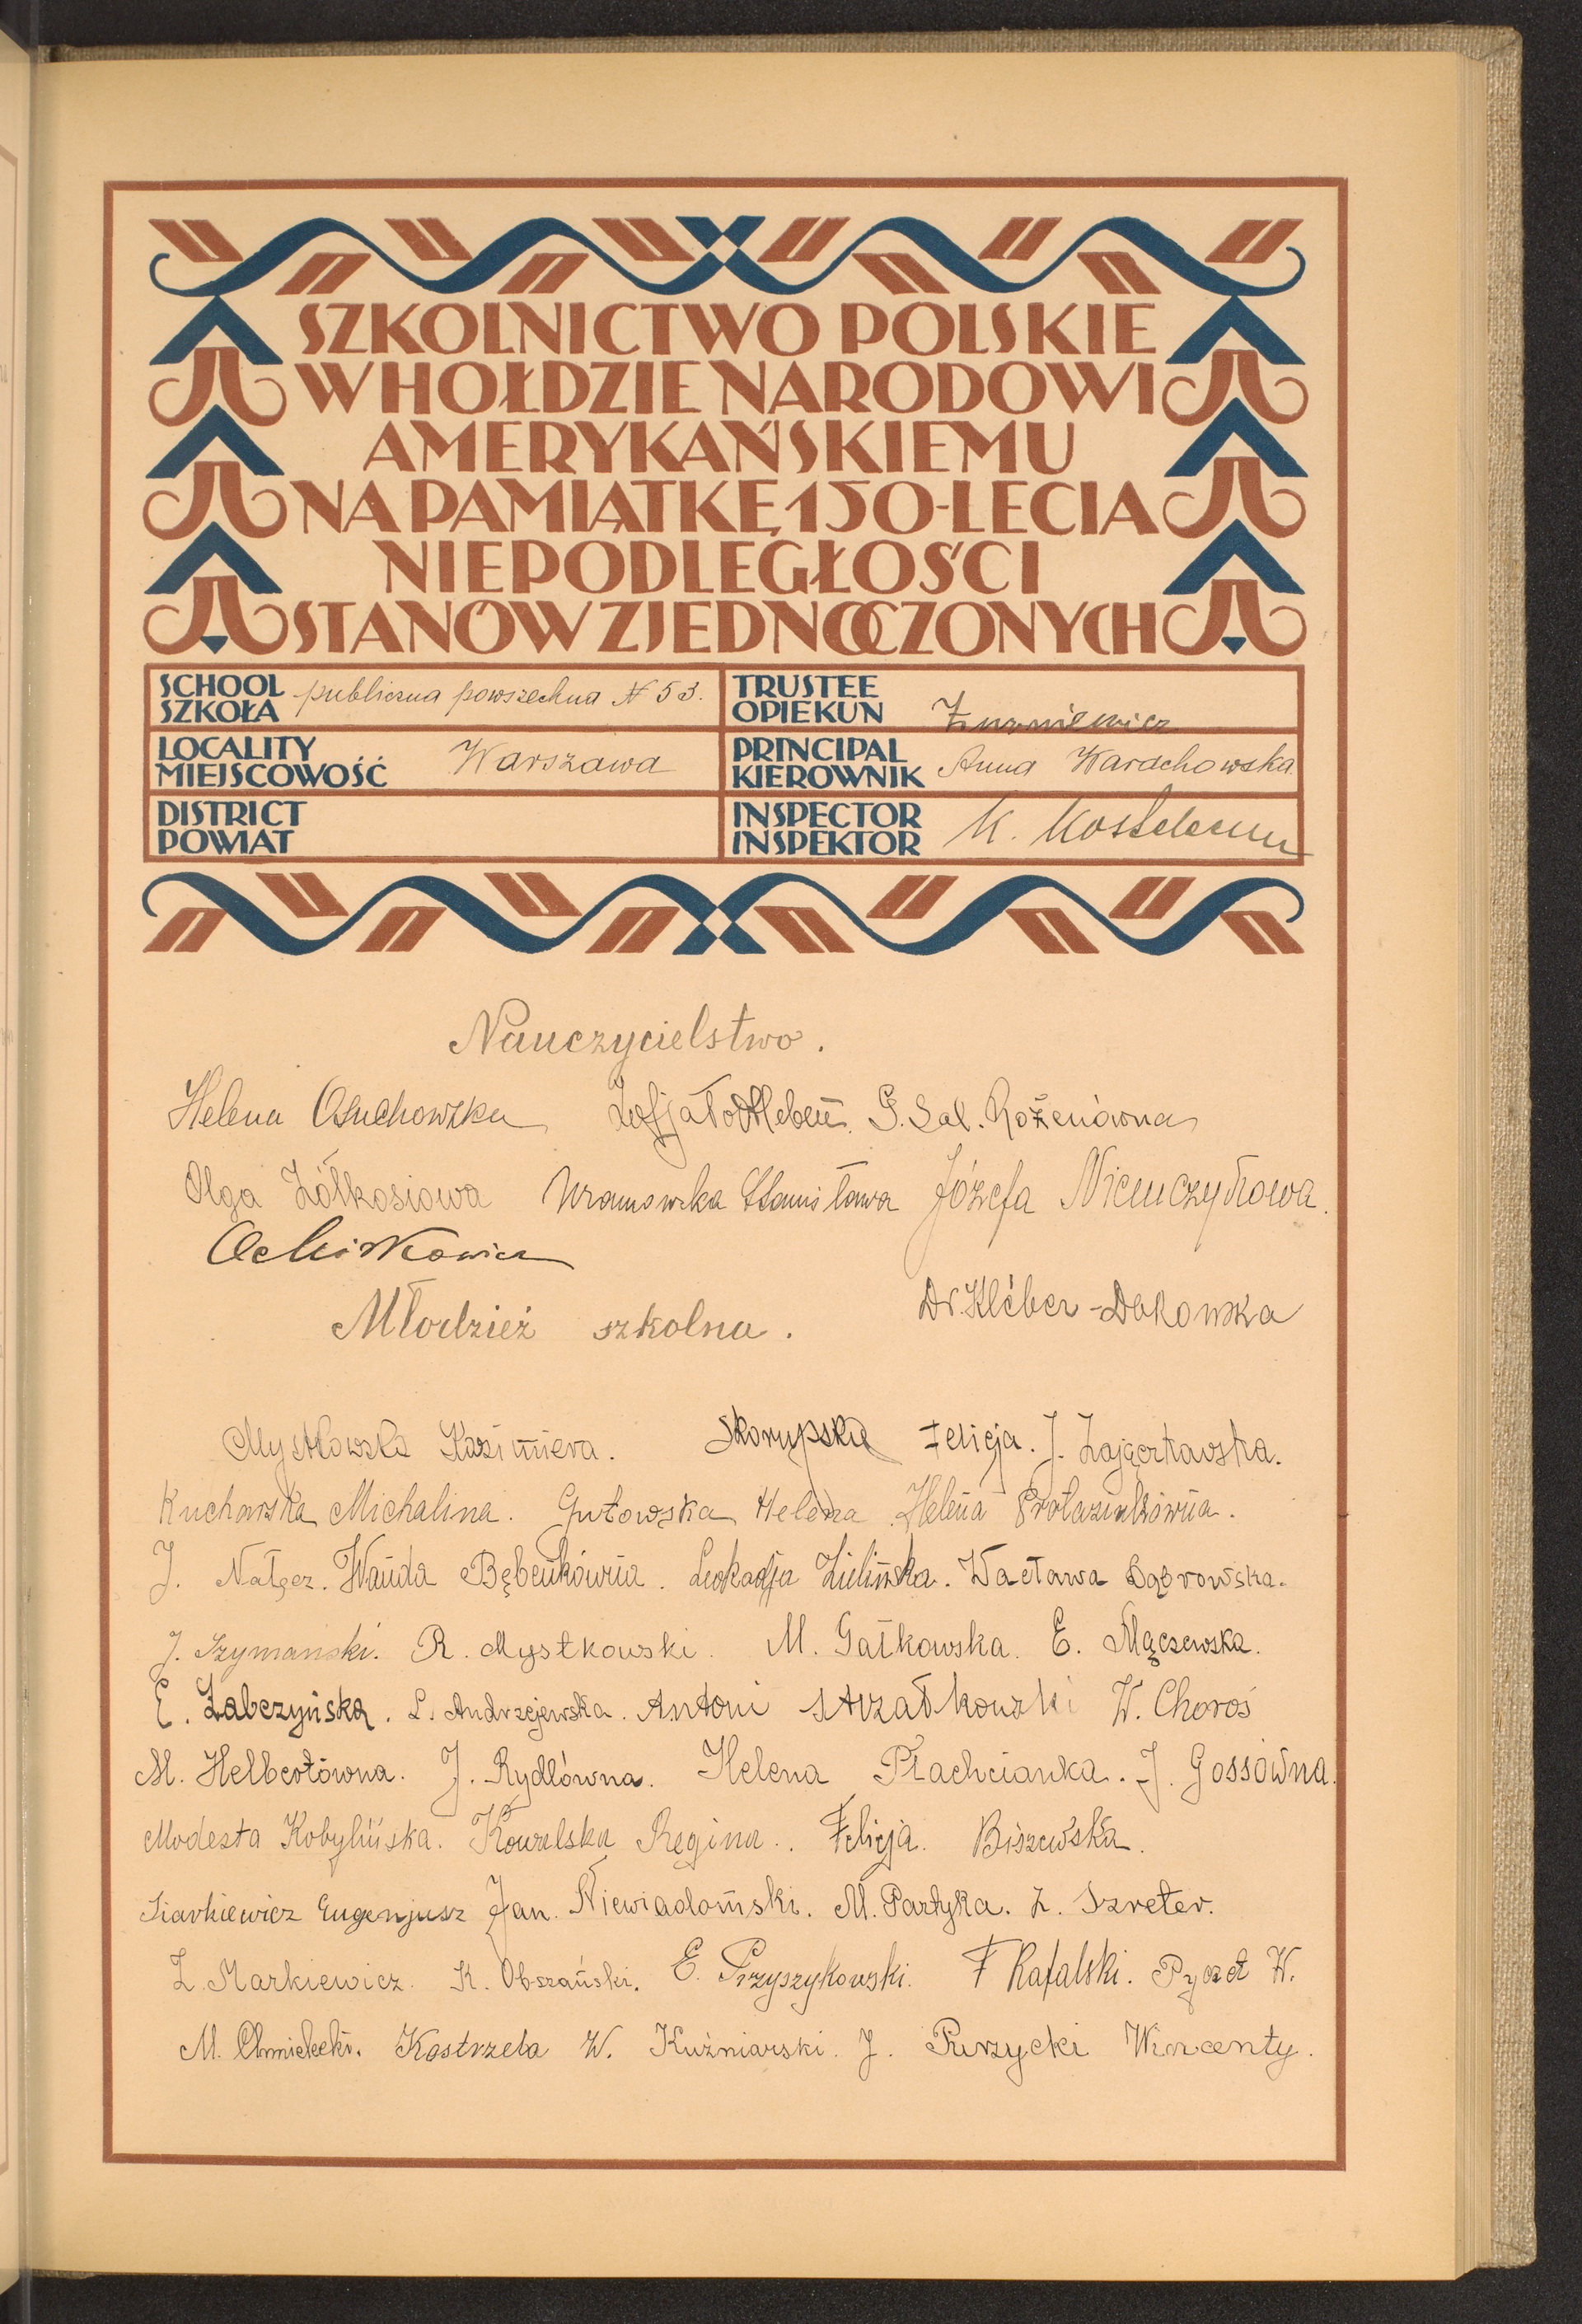 SZKOLNICTWO POLSKIE
W HOŁDZIE NARODOWI
AMERYKAŃSKIEMU
NA PAMIĄTKĘ 150-LECIA
NIEPODLEGŁOŚCI
STANÓW ZJEDNOCZONYCH
SCHOOL SZKOŁA publiczna powszechna N 53.
TRUSTEE OPIEKUN
LOCALITY MIEJSCOWOŚĆ Warszawa
PRINCIPAL KIEROWNIK Anna Karachowska
DISTRICT POWIAT
INSPECTOR INSPEKTOR K.
Nauczycielstwo.
Helena Osuchowska G. Sal. Rożenówna
Olga Żółkosiowa Stanisława Józefa Niemczykowa.
Dr Kléber-Dakowska
Młodzież szkolna.
Mystkowska Kazimiera. Skorupska Felicja. J. Zajączkowska.
Kucharska Michalina. Gutowska Helena Helena
J. Nałęcz. Wanda Bębenkówna. Leokadja Zielińska. Wacława Dąbrowska.
J. Szymański. R. Mystkowski. M. Gałkowska. E. Mączewska.
E. Żabczyńska. L. Andrzejewska. Antoni Strzałkowski W. Choroś
M. Helbertówna. J. Rydlówna. Helena Płachcianka. J. Gossówna.
Modesta Kobylińska. Kowalska Regina. Felicja. Biszewska.
Siarkiewicz Eugenjusz Jan. Niewiadomski. M. Partyka. Z. Szreter.
Z. Markiewicz. K. Obszański. E. Przyszykowski. F Rafalski. W.
M. Chmielecki. Kostrzela W. Kuźniarski. J. Purzycki Wincenty.